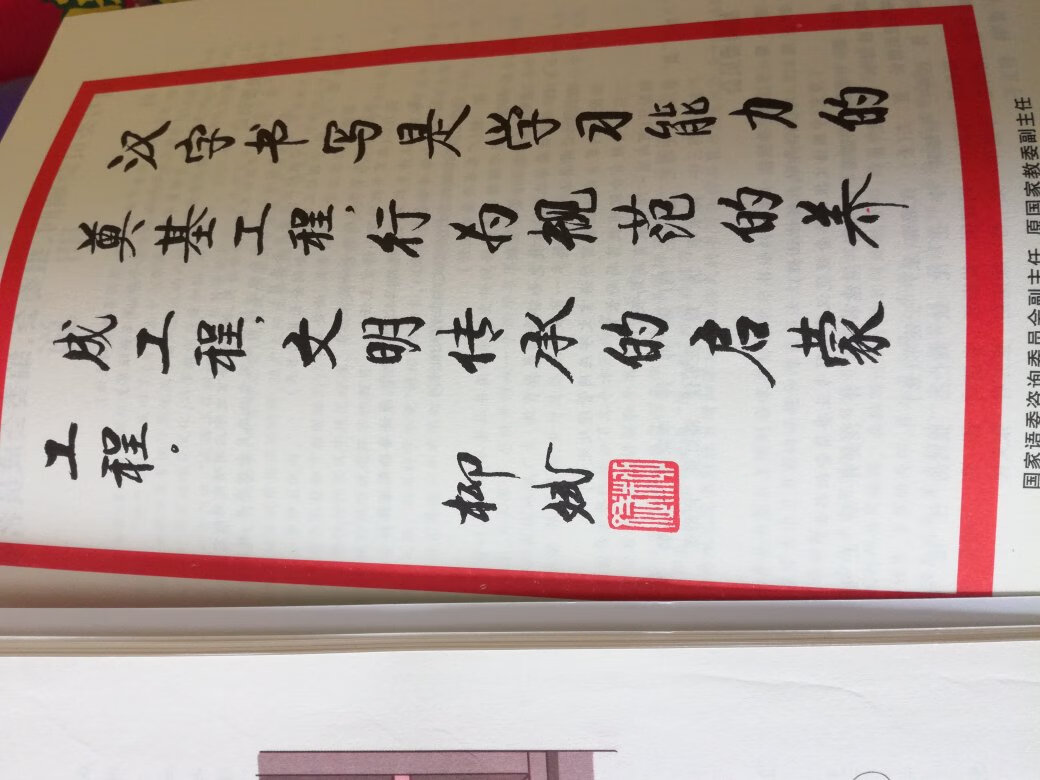 汉字书写是学习能力的
奠基工程，行为规范的养
成工程，文明传承的启蒙
工程。
柳斌
国家语委咨询委员会副主任 原国家教委副主任